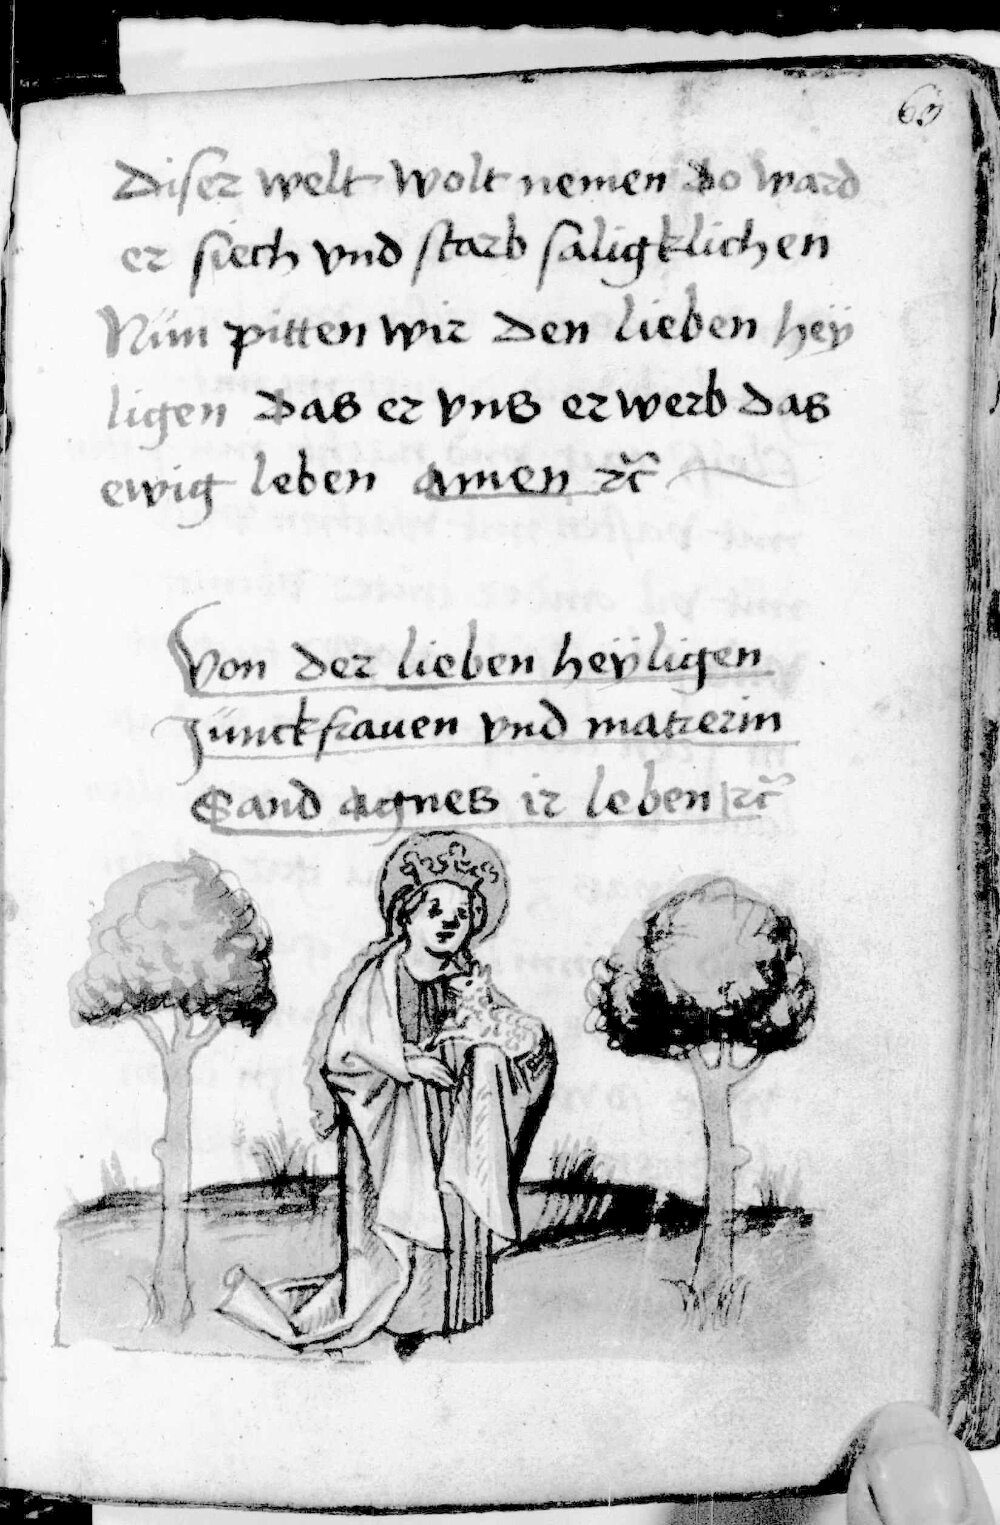 63
diser welt wolt nemen do ward
er siech vnd starb saligklichen
Nün pitten wir den lieben heÿ
ligen das er vns erwerb das
ewig leben amen ꝛc̃
Von der lieben heÿligen
Jünckfrauen vnd matrerin
Sand agnes ir leben ꝛc̃